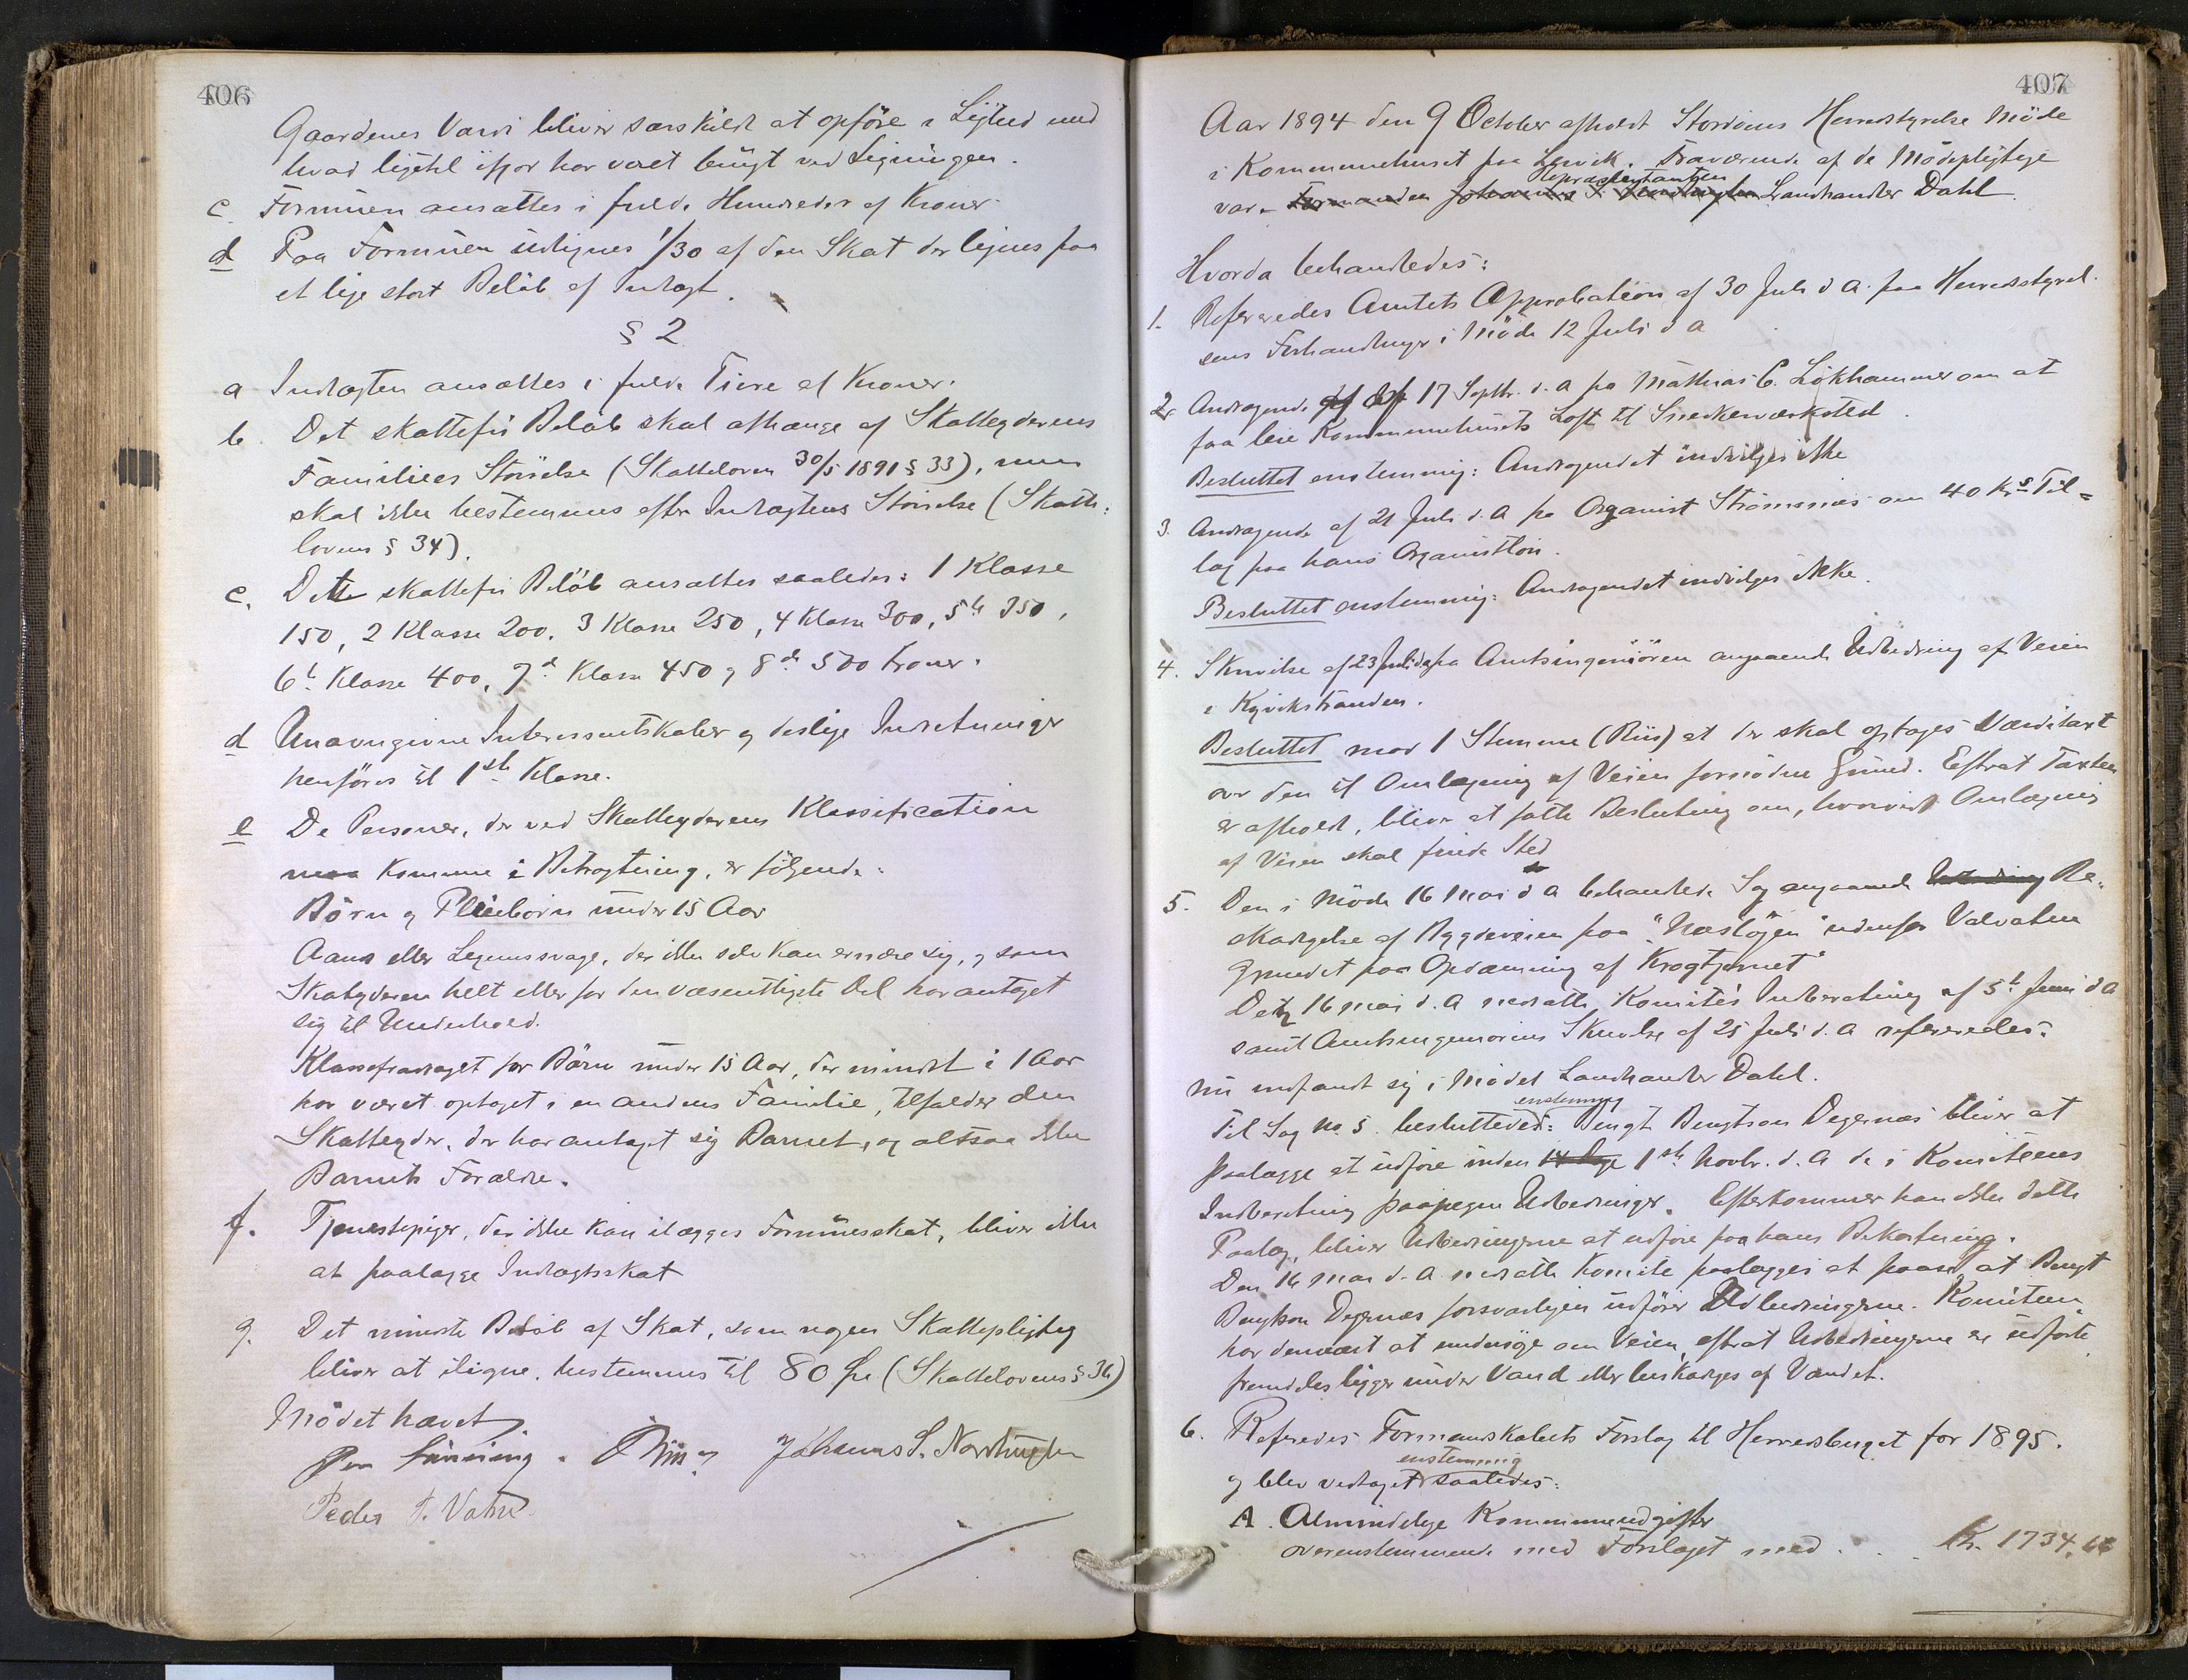 406
Gaardenes Værdi bliver særskildt at opføre i Lighed med
hvad ligetil ifjor har været brugt ved Ligningen.
c. Formuen ansættes i fulde Hundreder af Kroner.
d Paa Formuen udlignes 1/30 af den Skat der lignes paa
et lige stort Beløb af Indtægt.
§ 2
a Indtægten ansættes i fulde Tiere af Kroner.
b. Det skattefri Beløb skal afhænge af Skatteyderens
Families Størrelse (Skatteloven 30/5 1891 § 33), men
skal ikke bestemmes efter Indtægtens Størrelse (Skatte:
lovens § 34).
c. Dette skattefri Beløb ansættes saaledes: 1 Klasse
150, 2 Klasse 200, 3 Klasse 250, 4 Klasse 300, 5te 350,
6te Klasse 400, 7de Klasse 450 og 8de 500 Kroner.
d Unavngivne Interessentskaber og deslige Indretninger
henføres til 1ste Klasse.
e De Personer, der ved Skatteyderens Klassification
maa komme i Betragtning, er følgende:
Børn og Pleiebørn under 15 Aar
Aans eller Legemssvage, der ikke selv kan ernære sig, og som
Skatyderen helt eller for den væsentligste Del har antaget
sig til Underhold.
Klassefradraget for Børn under 15 Aar, der mindst i 1 Aar
har været optaget i en andens Familie, tilfalder den
Skatteyder, der har antaget sig Barnet, og altsaa ikke
Barnets Forældre.
f. Tjenestepiger, der ikke kan ilægges Formuesskat, bliver ikke
at paalægge Indtægtsskat
g. Det mindste Beløb af Skat, som nogen Skattepligtig
bliver at iligne, bestemmes til 80 Øre (Skattelovens § 36)
Mødet hævet
Johannes S. Nordhuglen
Peder T. Vatne
407
Aar 1894 den 9 October afholdt Stordøens Herredstyrelse Møde
i Kommunehuset paa Lervik. Fraværende af de Mødepligtige
Repræsentanten
var. Formanden Johannes S. Nordhuglen Landhandler Dahl.
Hvorda behandledes:
1. Refereredes Amtets Approbation af 30 Juli d A. paa Herredsstyrel.
sens Forhandlinger i Møde 12 Juli d A
2. Andragende af 17 Septbr. d. A fra Mathias C. Løkhammer om at
faa leie Kommunehusets Loft til Snedkerværksted.
Besluttet enstemmig: Andragendet indvilges ikke
3. Andragende af 21 Juli d. A fra Organist Strømsnes om 40 Krs Til=
læg paa hans Organistløn.
Besluttet enstemmig: Andragendet indvilges ikke.
4. Skrivelse af 23 Juli da fra Amtsingeniøren angaaende Udbedring af Veien
i Kyvikstranden.
Besluttet mod 1 Stemme (Riis) at der skal optages Værditaxt
over den til Omlægning af Veien fornødne Grund. Efterat Taxten
er afholdt, bliver at fatte Beslutning om, hvorvidt Omlægning
af Veien skal finde Sted
5. Den i Møde 16 Mai d A behandlede Sag angaaende Udbedring Be-
skadigelse af Bygdeveien paa "Næsløgjen" udenfor Valvatne
grundet paa Opdæmning af Krogtjernet
Den 16 Mai d. A nedsatte Komites Indberetning af 5te Juni d A
samt Amtsingeniørens Skrivelse af 25 Juli d. A refereredes.
Nu indfandt sig i Mødet Landhandler Dahl.
enstemmig
Til Sag No. 5. besluttedes: Bengt Bengtson Degernæs bliver at
paalægge at udføre inden 14 Dage 1ste Novbr. d. A de i Komiteens
Indberetning paapegte Udbedringer. Efterkommer han ikke dette
Paalæg, bliver Udbedringerne at udføre paa hans Bekostning.
Den 16 Mai d. A nedsatte Komite paalægges at paase at Bengt
Bengtson Degernæs forsvarligen udfører Udbedringerne. Komiteen
har dernæst at undersøge om Veien, efterat Udbedringerne er udførte,
fremdeles ligger under Vand eller beskadiges af Vandet.
6. Referedes Formandskabets Forslag til Herredsbuget for 1895.
enstemmig
og blev vedtaget saaledes:
A. Almindelige Kommuneudgifter
overenstemmende med Forslaget med . . . Kr. 1734.66